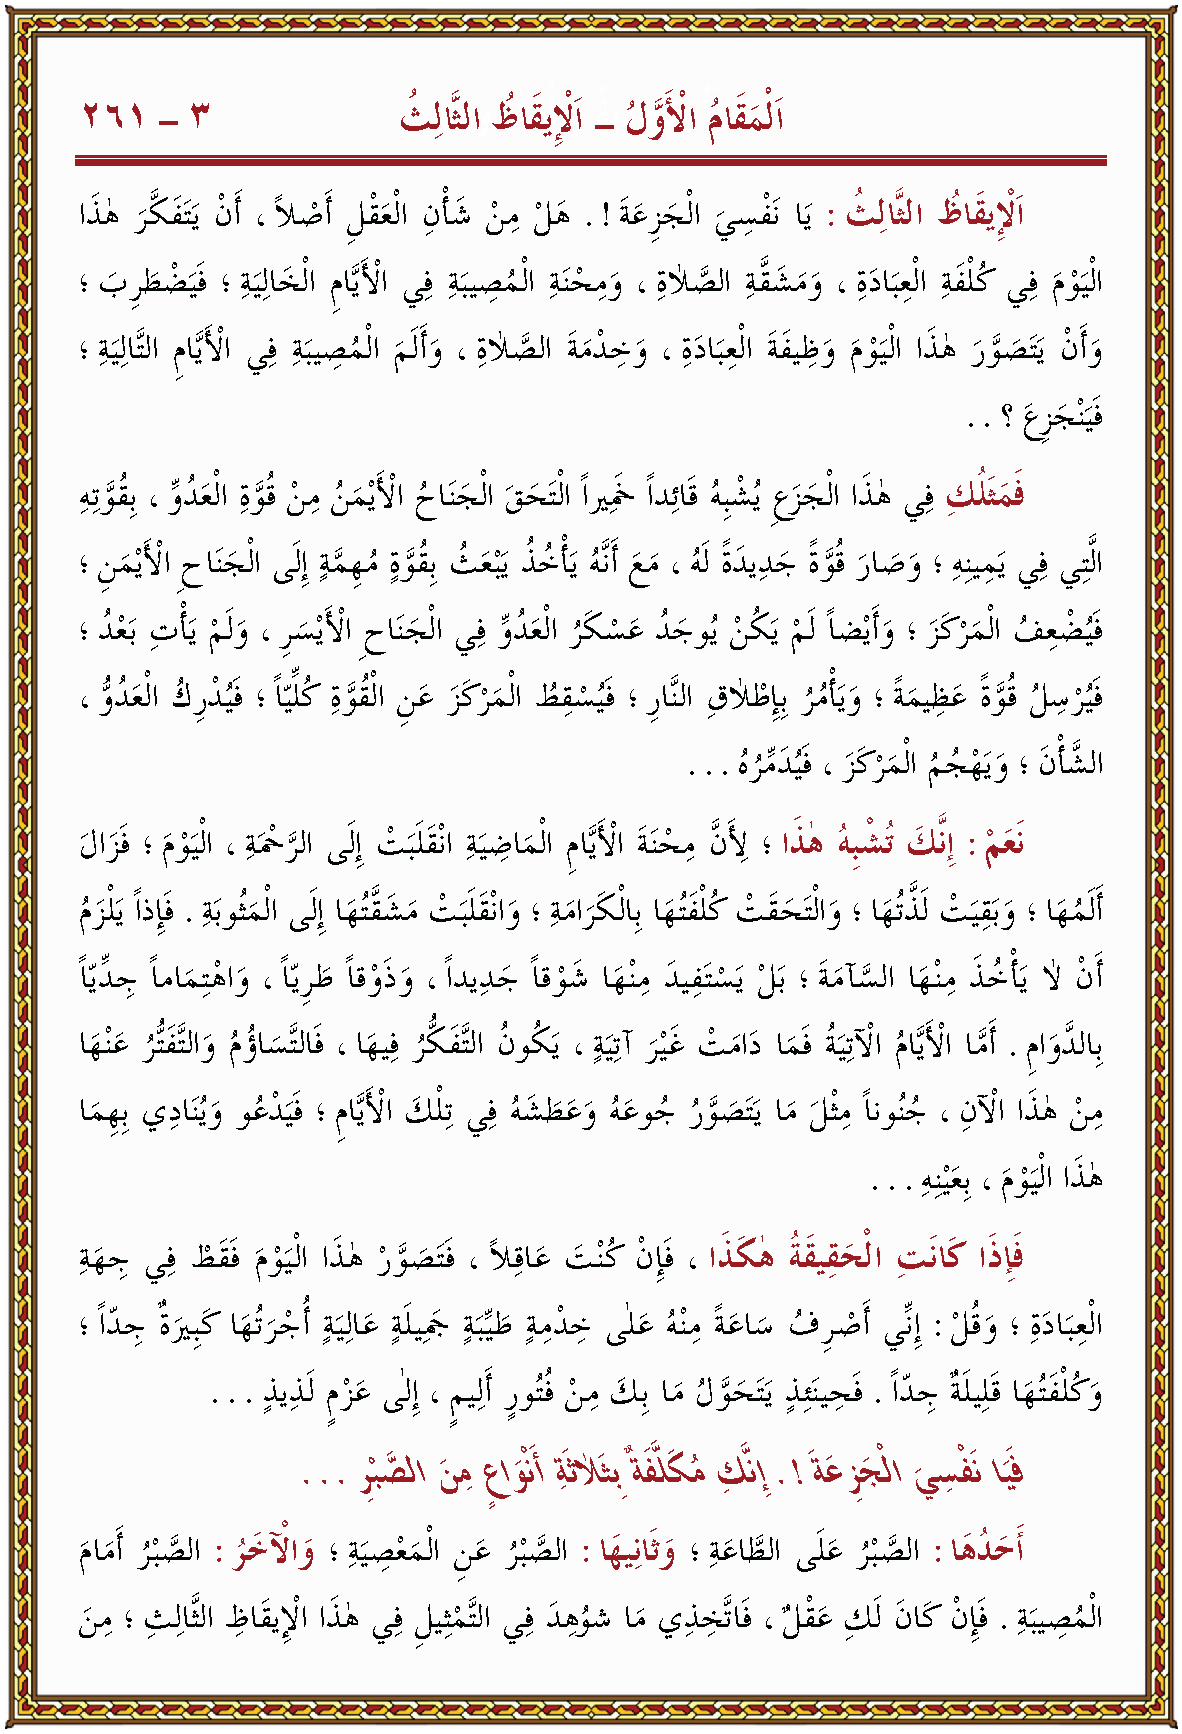 اَلْمَقَامُ الْأَوَّلُ – اَلْإِيقَاظُ الثَّالِثُ ٣ – ٢٦١
اَلْإِيقَاظُ الثَّالِثُ : يَا نَفْسِيَ الْجَزِعَةَ ! . هَلْ مِنْ شَأْنِ الْعَقْلِ أَصْلاً ، أَنْ يَتَفَكَّرَ هٰذَا
الْيَوْمَ فِي كُلْفَةِ الْعِبَادَةِ ، وَمَشَقَّةِ الصَّلاٰةِ ، وَمِحْنَةِ الْمُصِيبَةِ فِي الْأَيَّامِ الْخَالِيَةِ ؛ فَيَضْطَرِبَ ؛
وَأَنْ يَتَصَوَّرَ هٰذَا الْيَوْمَ وَظِيفَةَ الْعِبَادَةِ ، وَخِدْمَةَ الصَّلاٰةِ ، وَأَلَمَ الْمُصِيبَةِ فِي الْأَيَّامِ التَّالِيَةِ ؛
فَيَنْجَزِعَ ؟ . .
فَمَثَلُكِ فِي هٰذَا الْجَزَعِ يُشْبِهُ قَائِداً خَمِيراً الْتَحَقَ الْجَنَاحُ الْأَيْمَنُ مِنْ قُوَّةِ الْعَدُوِّ ، بِقُوَّتِهِ
الَّتِي فِي يَمِينِهِ ؛ وَصَارَ قُوَّةً جَدِيدَةً لَهُ ، مَعَ أَنَّهُ يَأْخُذُ يَبْعَثُ بِقُوَّةٍ مُهِمَّةٍ إِلَى الْجَنَاحِ الْأَيْمَنِ ؛
فَيُضْعِفُ الْمَرْكَزَ ؛ وَأَيْضاً لَمْ يَكُنْ يُوجَدُ عَسْكَرُ الْعَدُوِّ فِي الْجَنَاحِ الْأَيْسَرِ ، وَلَمْ يَأْتِ بَعْدُ ؛
فَيُرْسِلُ قُوَّةً عَظِيمَةً ؛ وَيَأْمُرُ بِإِطْلاٰقِ النَّارِ ؛ فَيُسْقِطُ الْمَرْكَزَ عَنِ الْقُوَّةِ كُلِّيّاً ؛ فَيُدْرِكُ الْعَدُوُّ ،
الشَّأْنَ ؛ وَيَهْجُمُ الْمَرْكَزَ ، فَيُدَمِّرُهُ . . .
نَعَمْ : إِنَّكَ تُشْبِهُ هٰذَا ؛ لِأَنَّ مِحْنَةَ الْأَيَّامِ الْمَاضِيَةِ انْقَلَبَتْ إِلَى الرَّحْمَةِ ، الْيَوْمَ ؛ فَزَالَ
أَلَمُهَا ؛ وَبَقِيَتْ لَذَّتُهَا ؛ وَالْتَحَقَتْ كُلْفَتُهَا بِالْكَرَامَةِ ؛ وَانْقَلَبَتْ مَشَقَّتُهَا إِلَى الْمَثُوبَةِ . فَإِذاً يَلْزَمُ
أَنْ لاٰ يَأْخُذَ مِنْهَا السَّآمَةَ ؛ بَلْ يَسْتَفِيدَ مِنْهَا شَوْقاً جَدِيداً ، وَذَوْقاً طَرِيّاً ، وَاهْتِمَاماً جِدِّيّاً
بِالدَّوَامِ . أَمَّا الْأَيَّامُ الْآتِيَةُ فَمَا دَامَتْ غَيْرَ آتِيَةٍ ، يَكُونُ التَّفَكُّرُ فِيهَا ، فَالتَّسَاؤُمُ وَالتَّفَتُّرُ عَنْهَا
مِنْ هٰذَا الْآنِ ، جُنُوناً مِثْلَ مَا يَتَصَوَّرُ جُوعَهُ وَعَطَشَهُ فِي تِلْكَ الْأَيَّامِ ؛ فَيَدْعُو وَيُنَادِي بِهِمَا
هٰذَا الْيَوْمَ ، بِعَيْنِهِ . . .
فَإِذَا كَانَتِ الْحَقِيقَةُ هٰكَذَا ، فَإِنْ كُنْتَ عَاقِلاً ، فَتَصَوَّرْ هٰذَا الْيَوْمَ فَقَطْ فِي جِهَةِ
الْعِبَادَةِ ؛ وَقُلْ : إِنِّي أَصْرِفُ سَاعَةً مِنْهُ عَلٰى خِدْمَةٍ طَيِّبَةٍ جَمِيلَةٍ عَالِيَةٍ أُجْرَتُهَا كَبِيرَةٌ جِدّاً ؛
وَكُلْفَتُهَا قَلِيلَةٌ جِدّاً . فَحِينَئِذٍ يَتَحَوَّلُ مَا بِكَ مِنْ فُتُورٍ أَلِيمٍ ، إِلٰى عَزْمٍ لَذِيذٍ . . .
فَيَا نَفْسِيَ الْجَزِعَةَ ! . إِنَّكِ مُكَلَّفَةٌ بِثَلاَثَةِ أَنْوَاعٍ مِنَ الصَّبْرِ . . .
أَحَدُهَا : الصَّبْرُ عَلَى الطَّاعَةِ ؛ وَثَانِيهَا : الصَّبْرُ عَنِ الْمَعْصِيَةِ ؛ وَالْآخَرُ : الصَّبْرُ أَمَامَ
الْمُصِيبَةِ . فَإِنْ كَانَ لَكِ عَقْلٌ ، فَاتَّخِذِي مَا شُوهِدَ فِي التَّمْثِيلِ فِي هٰذَا الْإِيقَاظِ الثَّالِثِ ؛ مِنَ